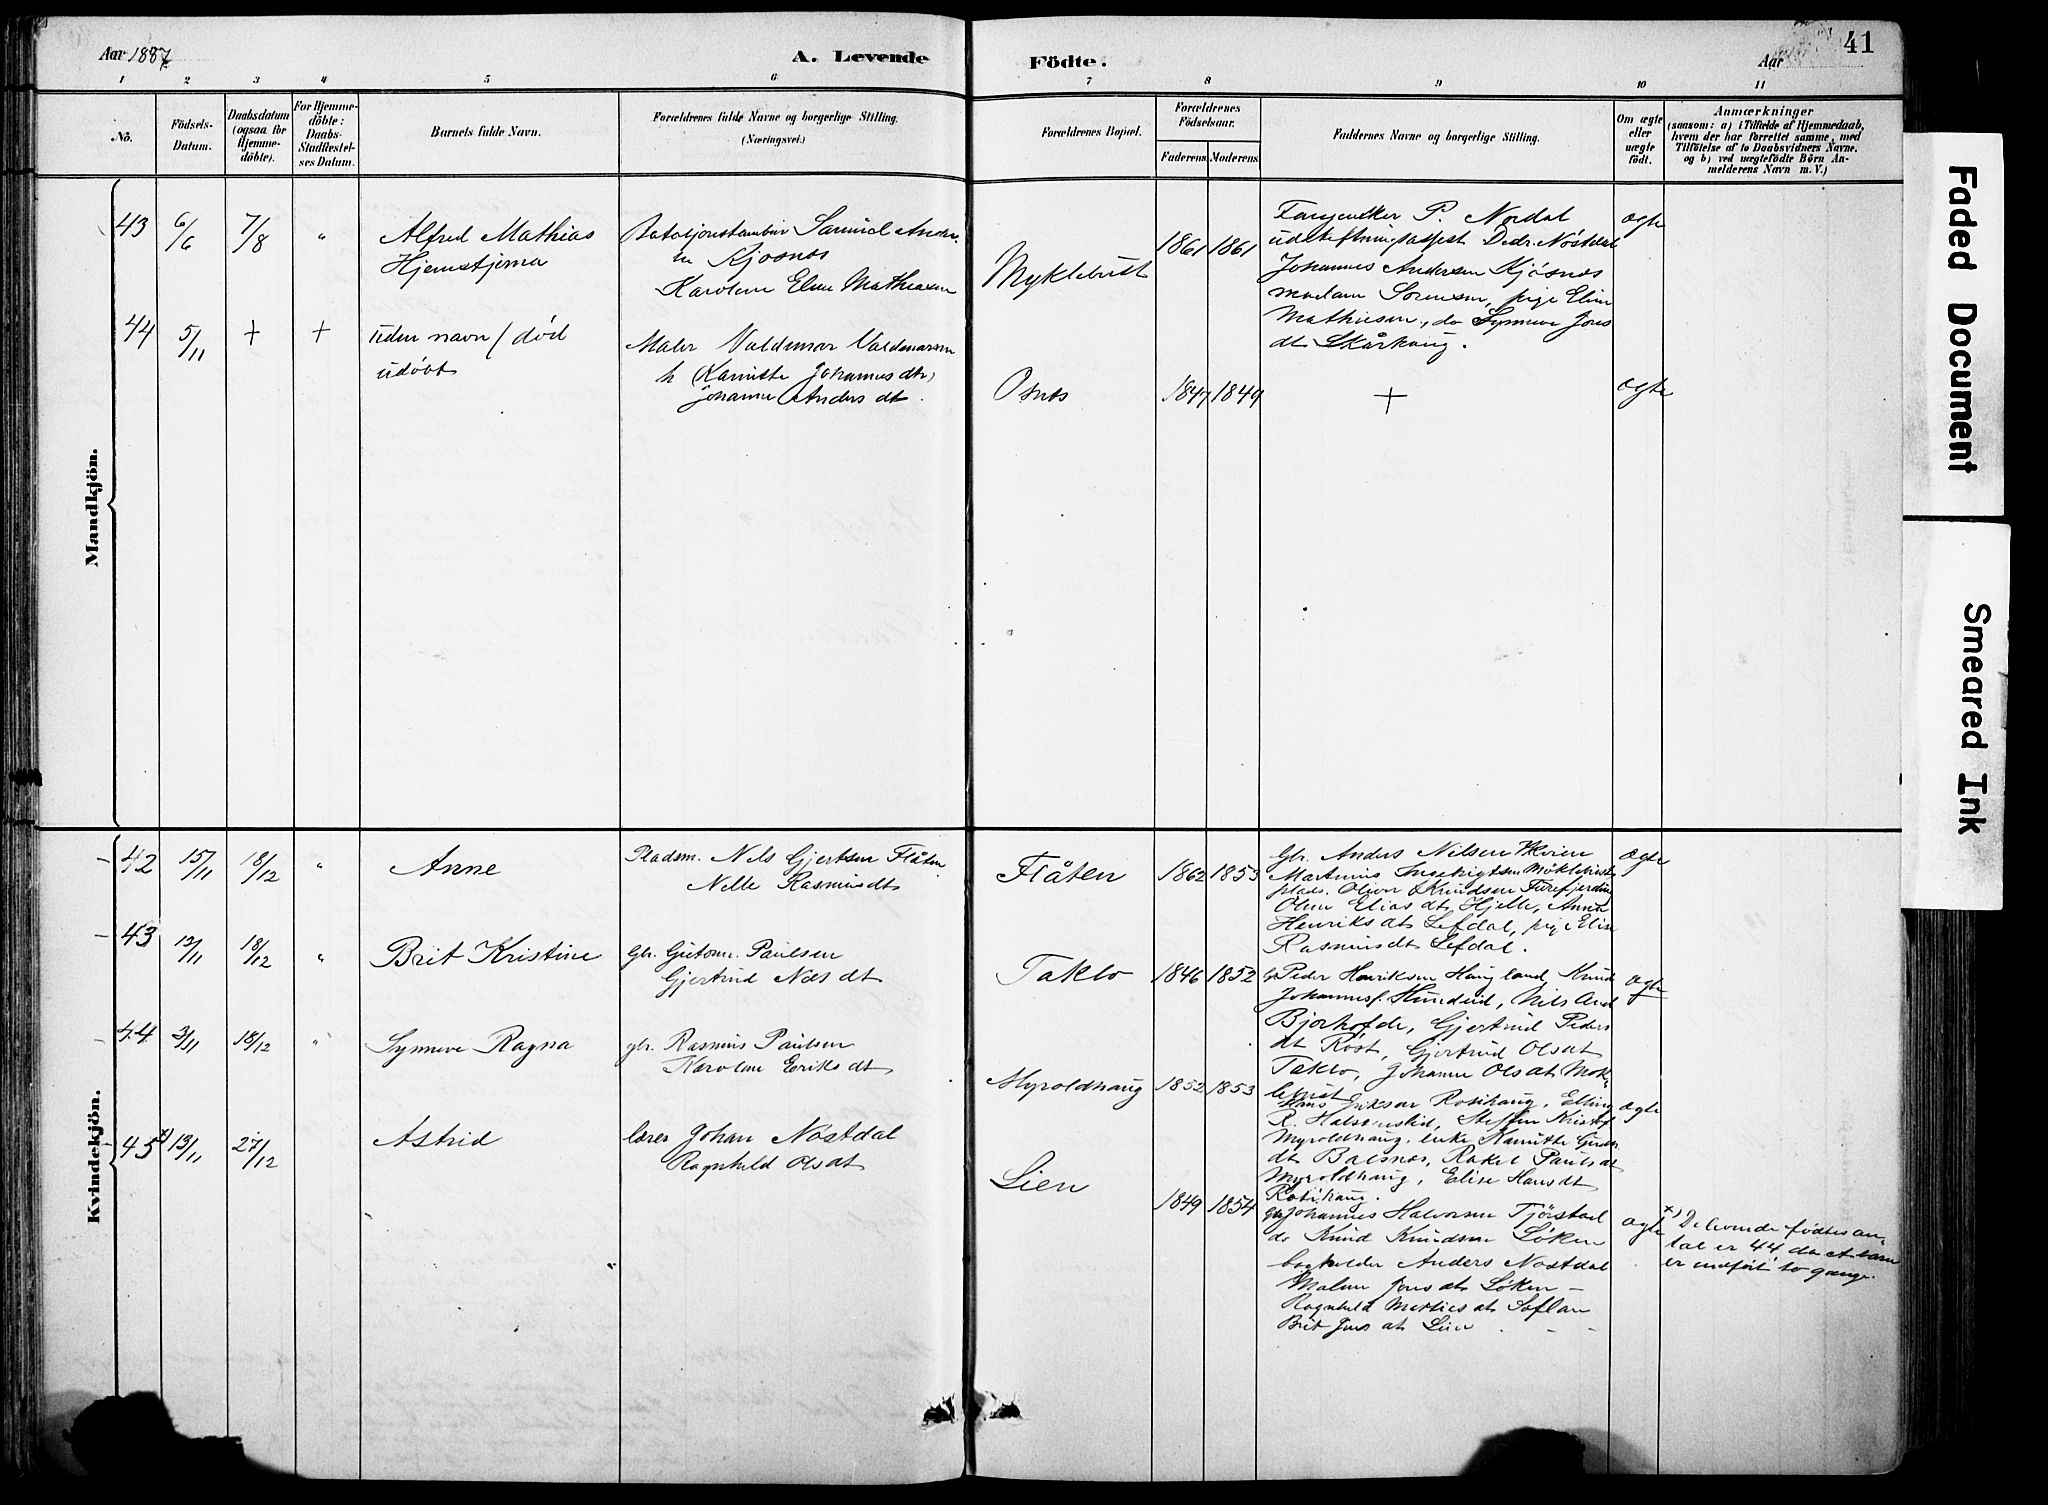 Aar 1887
A. Levende
Födte.
Aar
41
1 2 3 4 5 6 7 8 9 10 11
No.
Födsels-
Datum.
Daabsdatum
(ogsaa for
Hjemme-
döbte).
For Hjemme-
döbte:
Daabs-
Stadfæstel-
ses Datum.
Barnets fulde Navn.
Forældrenes fulde Navne og borgerlige Stilling.
(Næringsvei.)
Forældrenes Bopæl.
Forældrenes
Födselsaar.
Faderens Moderens
Faddernes Navne og borgerlige Stilling.
Om ægte
eller
uægte
födt.
Anmærkninger
(saasom: a) i Tilfælde af Hjemmedaab,
hvem der har forrettet samme, med
Tilföielse af to Daabsvidners Navne.
og b) ved uægtefödte Börn An-
melderens Navn m. V.)
Mandkjön.
43 6/6 7/8 "
Alfred Mathias
Hjemstjerna
Samuel
Kjosnes
Karoline Eline Mathiasen
Myklebust
1861 1861
P. Nordal
Nøstdal
Johannes Andersen Kjøsnes
madam Sørensen, pige Eline
Mathiesen, do Synneve Jons
dt Skårhaug.
ægte
44 5/11 + +
uden navn / død
udøbt
Maler Valdemar Valdemarsen
h (Karnitte Johannesdtr)
Johanne Anders dt.
Osnes
1847 1849
+
ægte
Kvindekjön.
42 15/11 18/12 "
Anne
Pladsm. Nils Gjertsen Flåten
Nelle Rasmusdt
Flåten
1862 1853
Gbr. Anders Nilsen
Martinus
plads. Oliver Knudsen
Oline Elias dt Hjelle, Anne
Henriks dt Lefdal, pige Eline
Rasmusdt Lefdal.
ægte
43 12/11 18/12 "
Brit Kristine
Gbr. Paulsen
Gjertrud Nils dt
Taklo
1846 1852
Peder Henriksen Haugland, Knud
Johannes. Hundeid, Nils And
Bjorhofde, Gjertrud Peders
dt Røst, Gjertrud Olsdt
Taklo, Johanne Olsdt Mok-
lebust
ægte
44 3/11 18/12 "
Synneve Ragna
gbr. Rasmus Paulsen
Karoline Eriks dt
Myroldhaug
1852 1853
Hans Eriksen Rosihaug, Elling
R. Steffen Kristof
Myroldhaug, enke Karnitte
dt Balsnes, Rakel Paulsdt
Myroldhaug, Elise Hansdt
Rosihaug.
ægte
45 x) 13/11 27/12
Astrid
lærer Johan Nøstdal
Ragnhild Olsdt
Lien
1849 1854
gbr Johannes Halvorsen Tjørstad
do Knud Knudsen Løken
bogholder Anders Nøstdal
Malene Jonsdt Løken
Ragnhild Mortiesdt Soflan
Brit Jonsdt Lien
ægte
x) De levende fødtes an-
tal er 44, da et barn
er indført to gange.
Faded Document
Smeared Ink